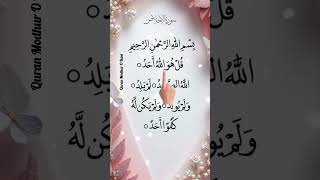 سورة الإخلاص
بِسْمِ اللَّهِ الرَّحْمٰنِ الرَّحِيمِ
قُلْ هُوَ اللَّهُ أَحَدٌ
اللَّهُ لَمْ يَلِدْ
وَلَمْ يُولَدْ وَلَمْ يَكُن لَّهُ
كُفُوًا أَحَدٌ
Quran Modhur O Bani